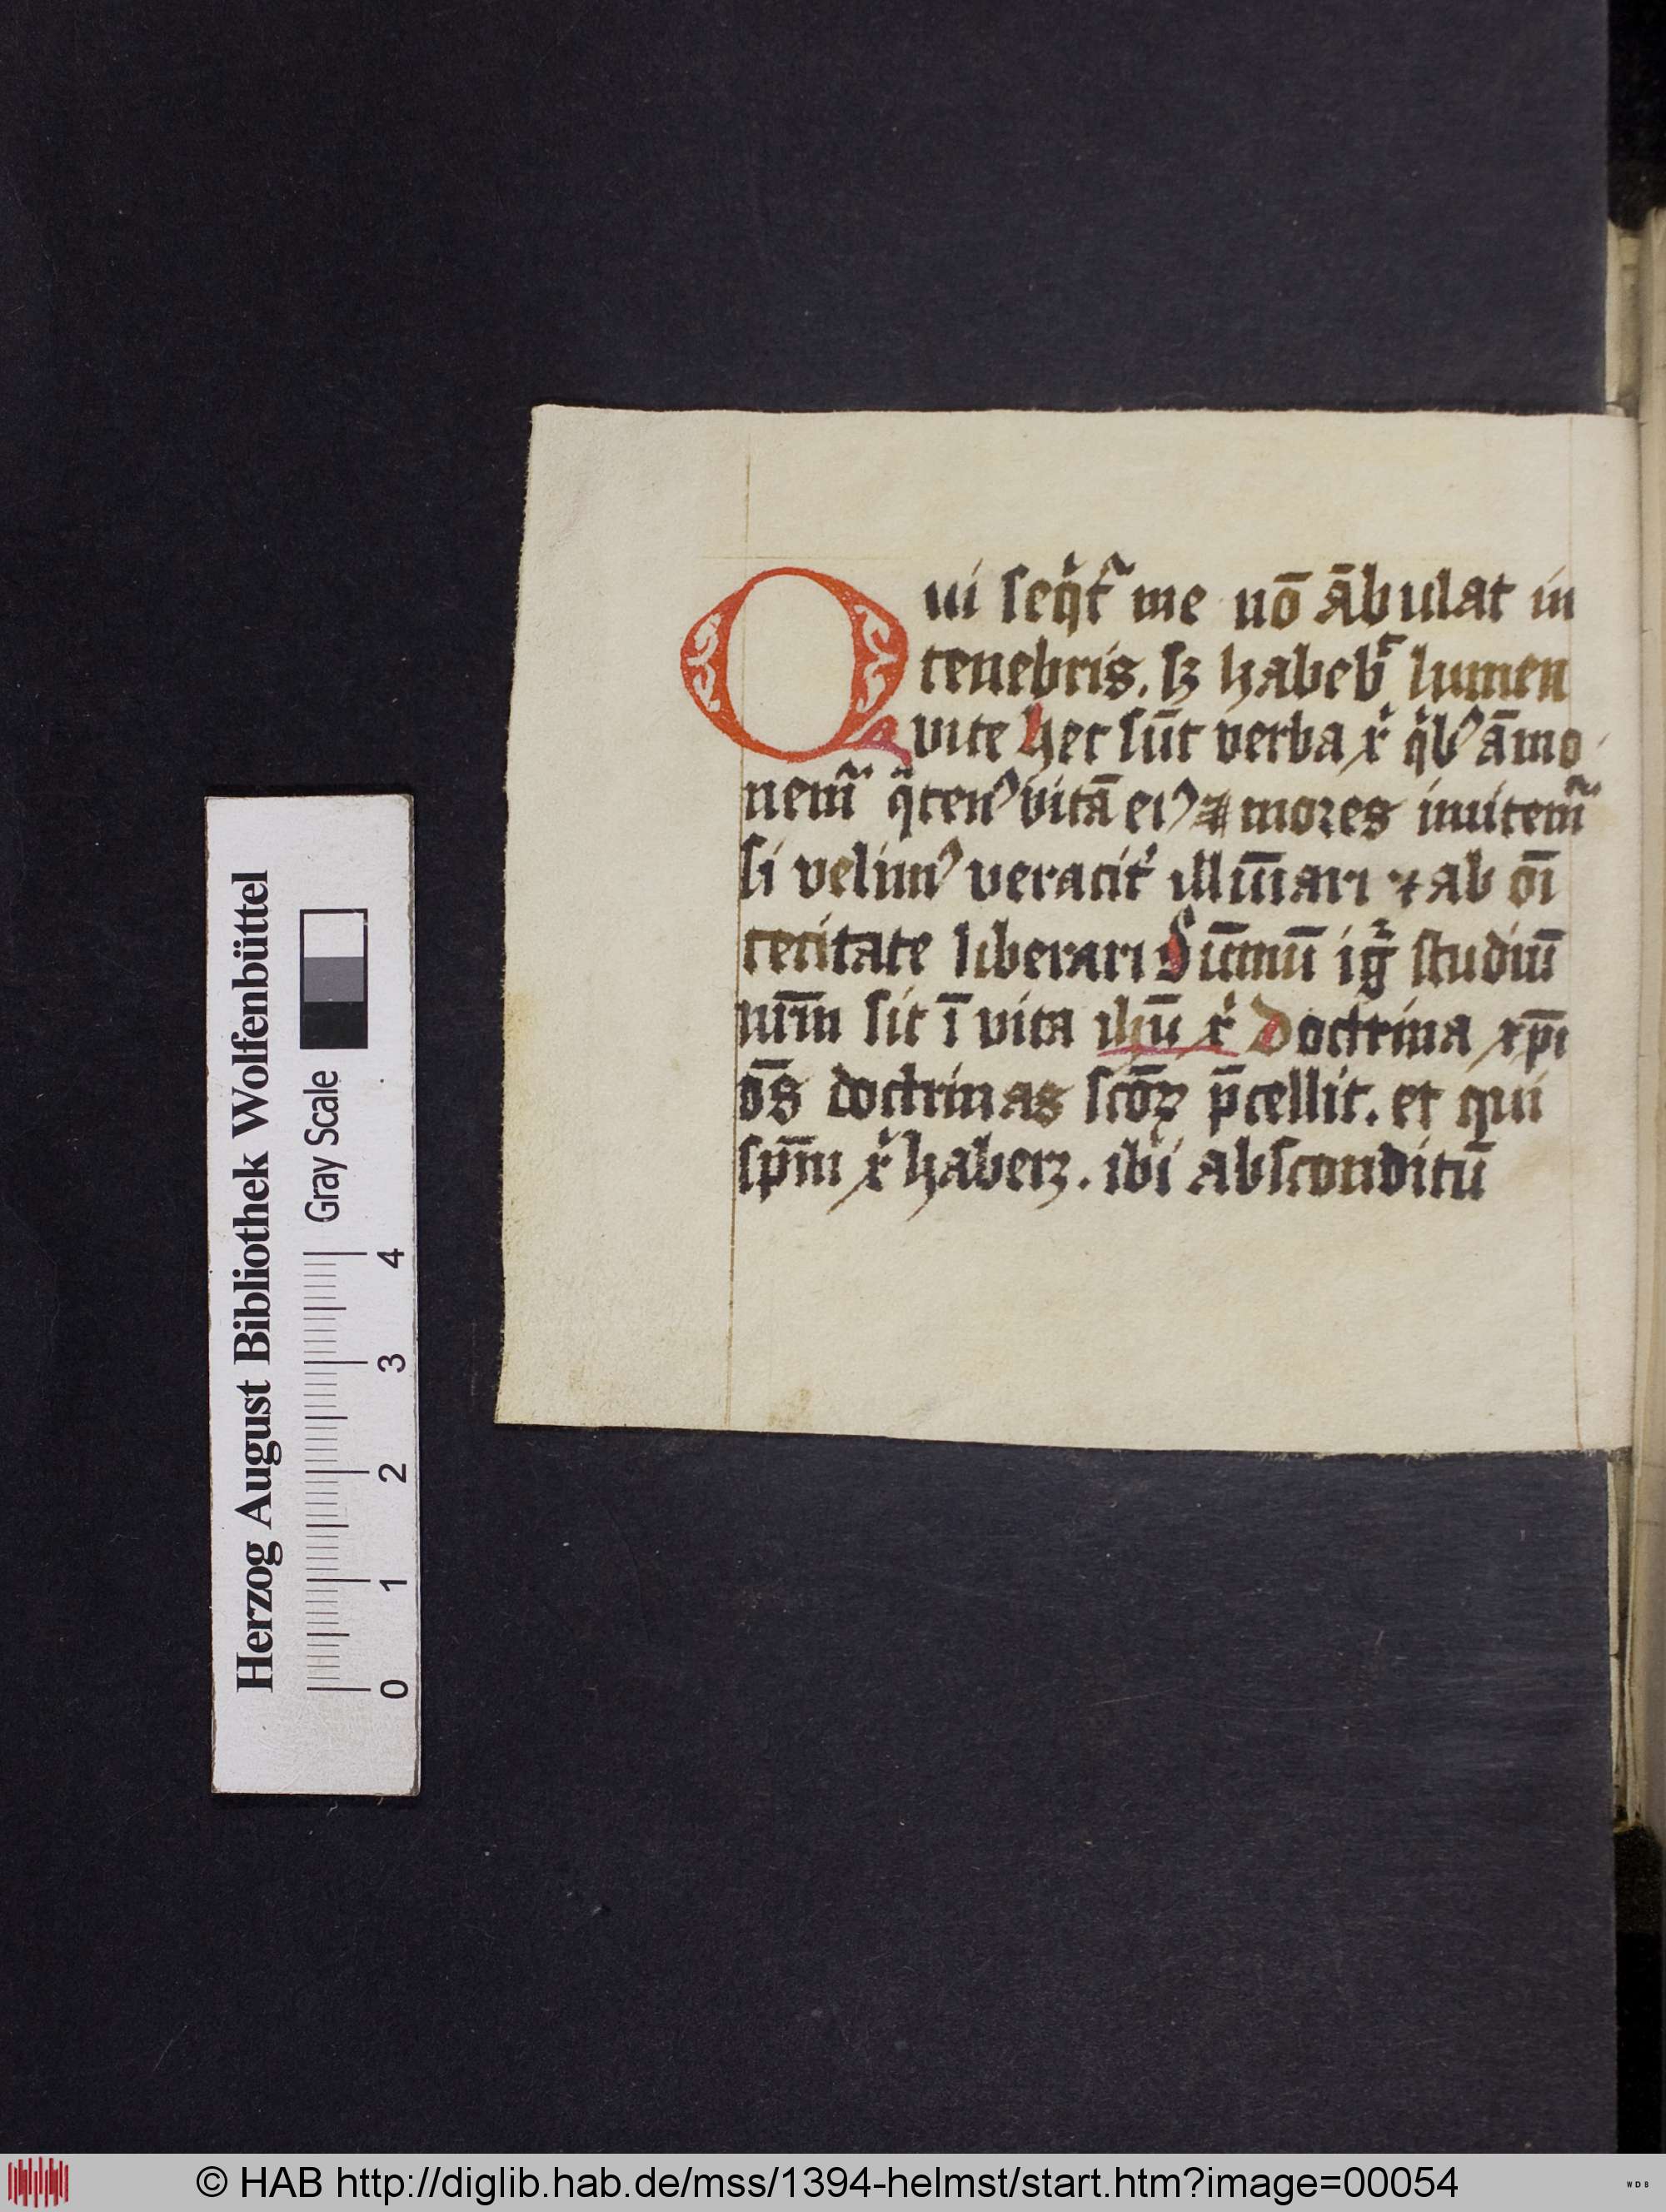 Qui seqͥt᷑ me nō ābulat in
tenebris. sꝫ habebᷣ lumen
vite Hec sūt verba xͥ qͥbꝰ āmo
nem᷑ qͣtenꝰ vitā eiꝰ ⁊ mores imitem᷑
si velimꝰ veracit᷑ illūīari ⁊ ab oī
cecitate liberari Sūmū igͬ studiū
nr̄m sit ī vita ihū xͥ Doctrina xp̄i
ōs doctrinas scōꝝ p̄cellit. et qui
sp̄m xͥ haberꝫ. ibi absconditū
Herzog August Bibliothek Wolfenbüttel
Gray Scale
0 1 2 3 4
© HAB http://diglib.hab.de/mss/1394-helmst/start.htm?image=00054
WDB